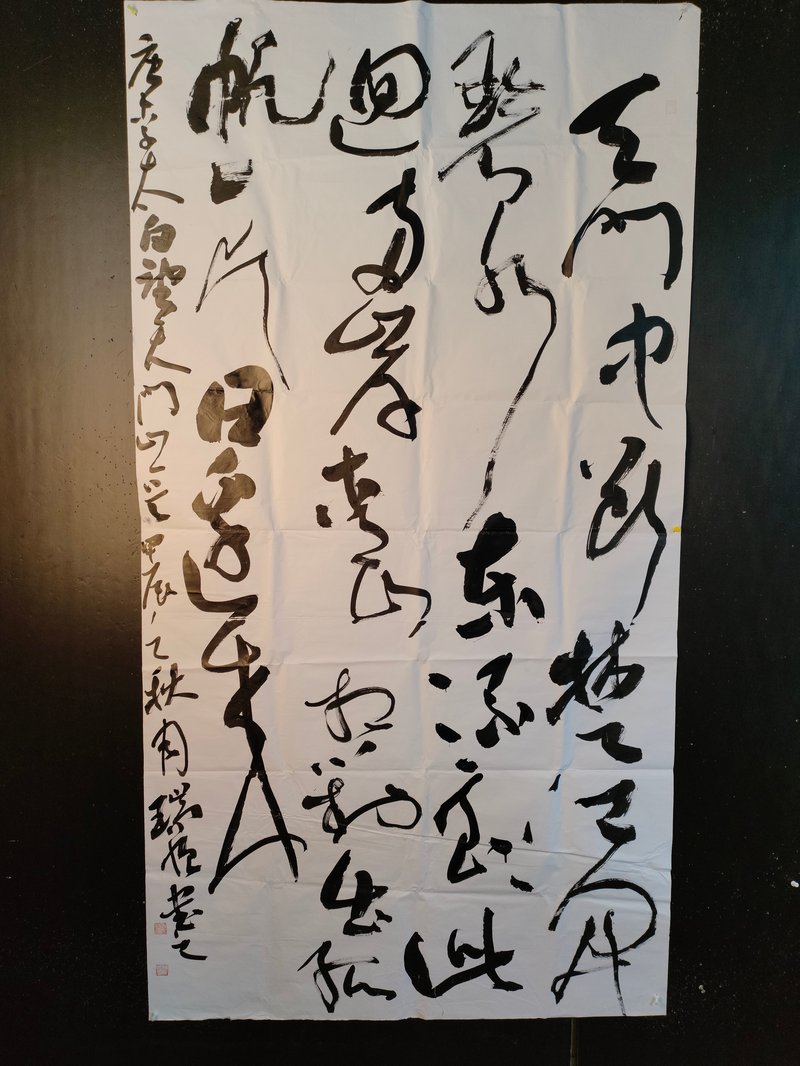 天门中断楚江开
碧水东流此
迴两岸青山相對出孤
帆一片日邊来
唐李太白望天门山甲辰之秋周瑞書之